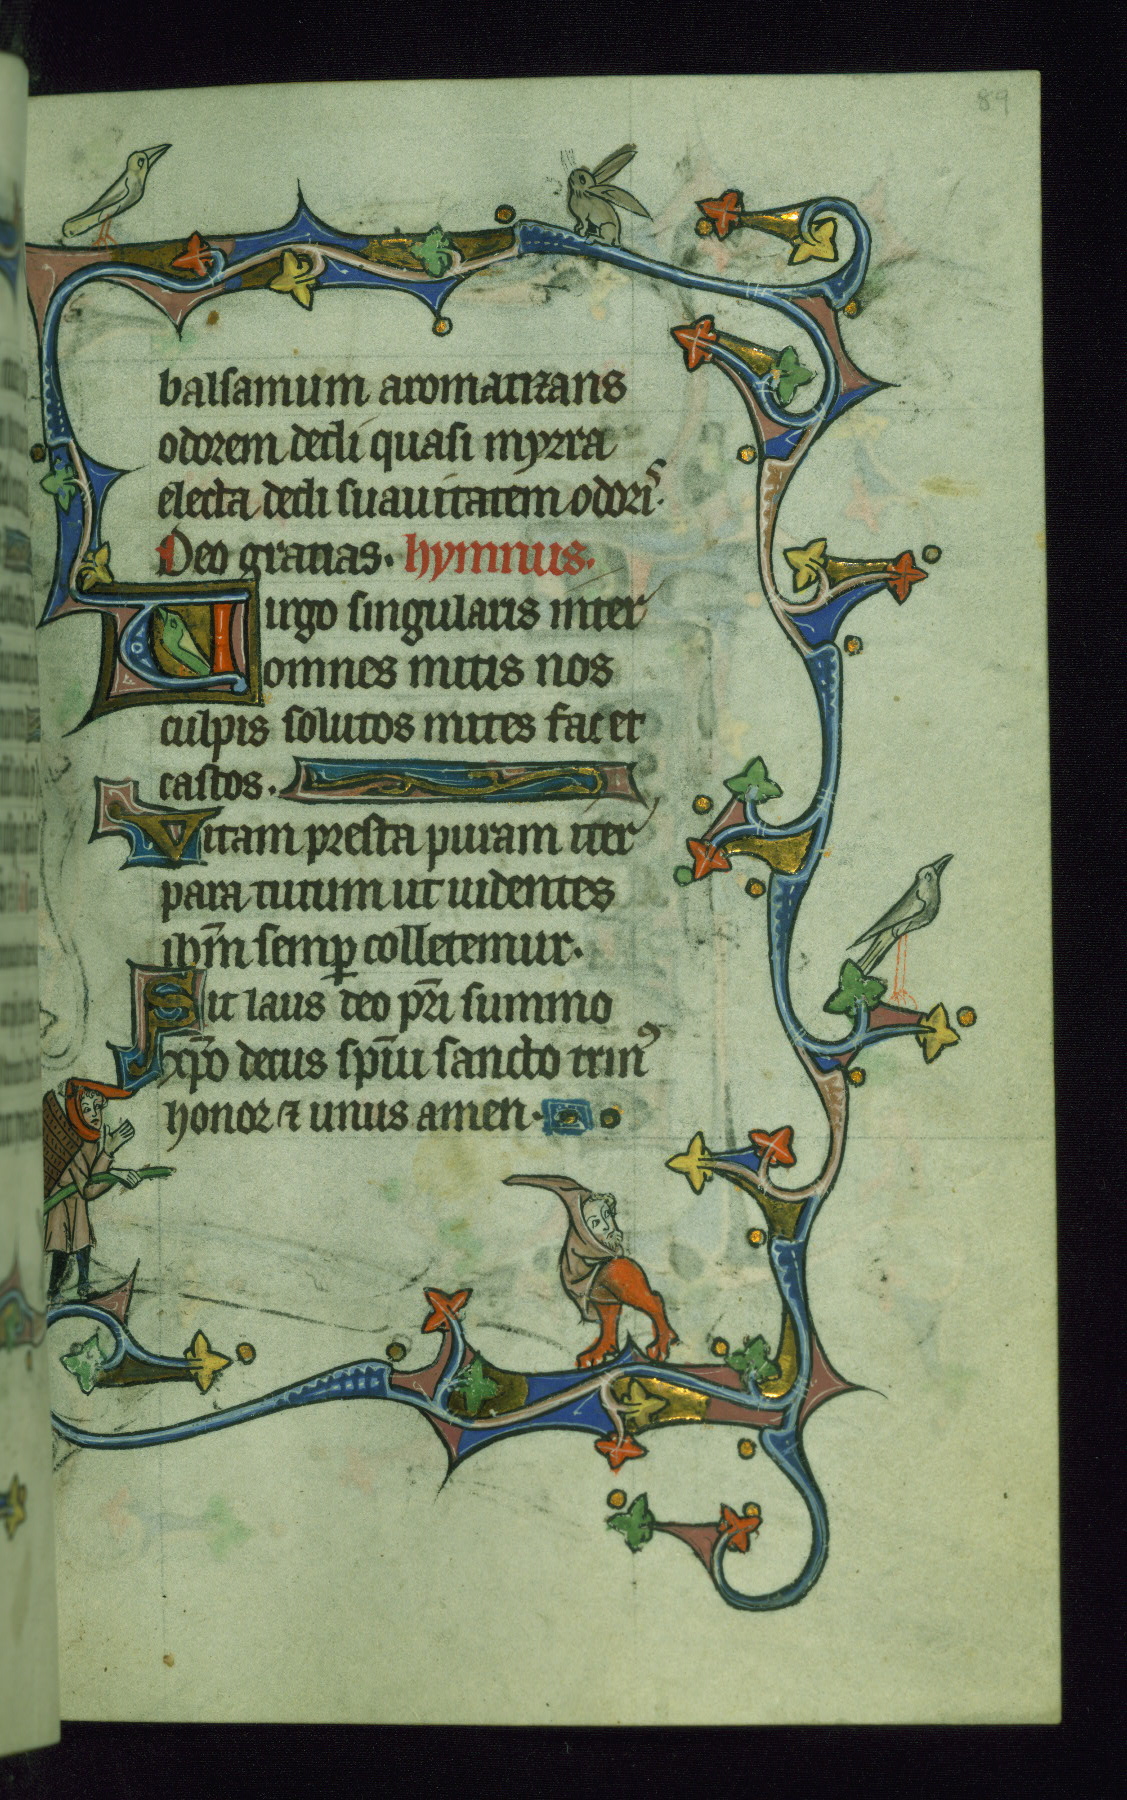 89
balsamum aromatizans
odorem dedi quasi myrra
electa dedi suauitatem odoris.
Deo gratias. hymnus.
Uirgo singularis inter
omnes mitis nos
culpis solutos mites fac et
castos.
Vitam presta puram iter
para tutum ut uidentes
ihm̄ semp̲ colletemur.
Sit laus deo p̄ri summo
xp̄o decus sp̄iu sancto trinꝰ
honor ⁊ unus amen.